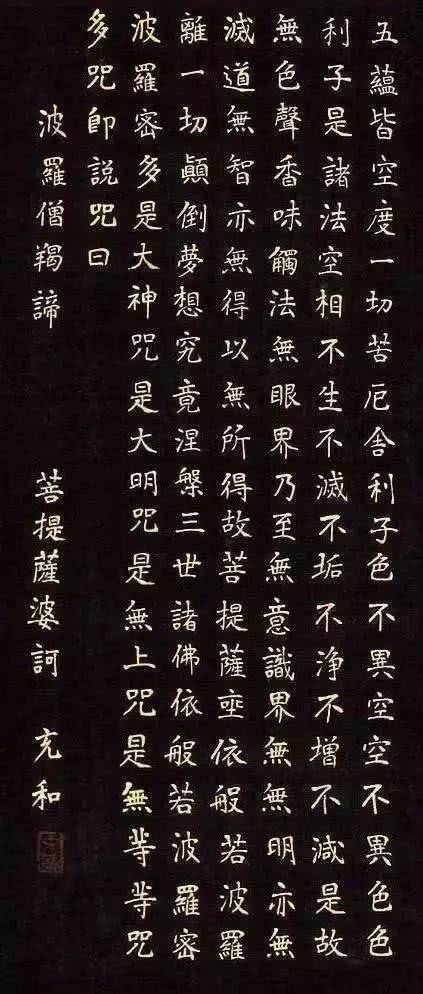 五蘊皆空度一切苦厄舎利子色不異空空不異色色
利子是諸法空相不生不滅不垢不淨不增不減是故
無色聲香味觸法無眼界乃至無意識界無無明亦無
滅道無智亦無得以無所得故菩提薩埵依般若波羅
離一切顛倒夢想究竟涅槃三世諸佛依般若波羅密
波羅密多是大神咒是大明咒是無上咒是無等等咒
多咒即說咒曰
波羅僧羯諦 菩提薩婆訶 充和